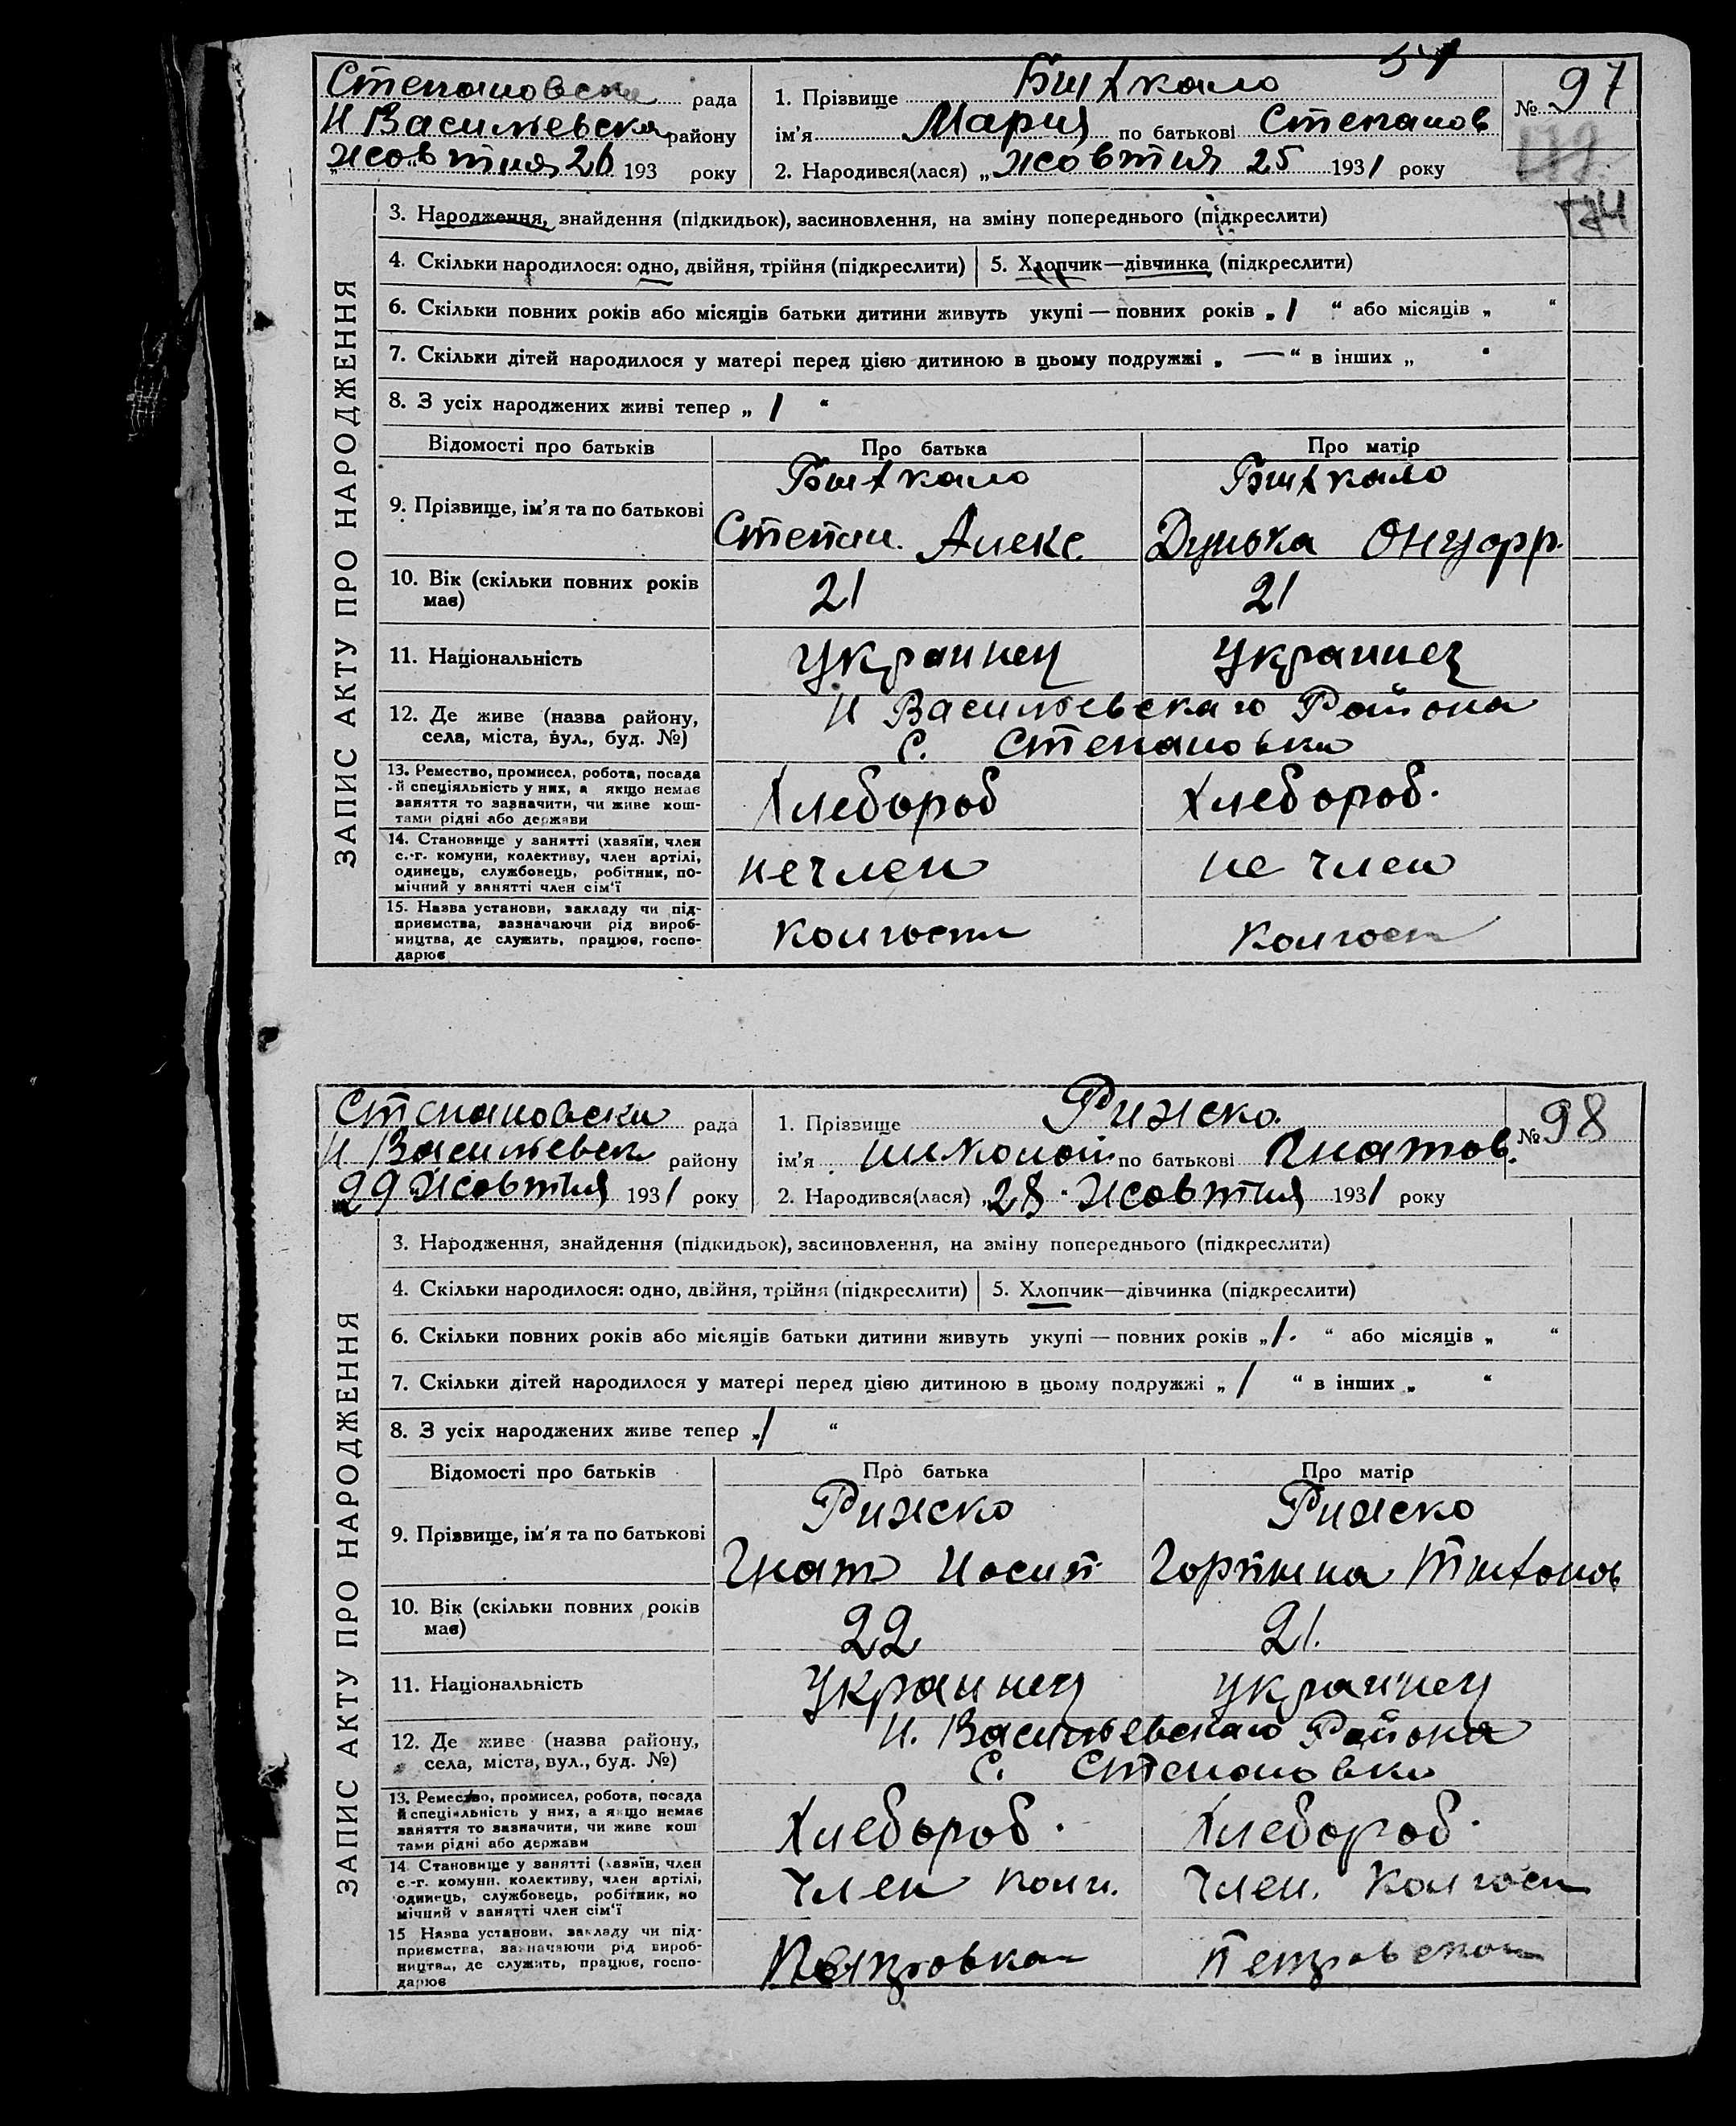 54
Степановска рада
Н Васильевска району
„жовтня 26 193 року
1. Прізвище Бишкало
ім'я Мария по батькові Степанов
2. Народився(лася) „жовтня 25 1931 року
№ 97
174
ЗАПИС АКТУ ПРО НАРОДЖЕННЯ
3. Народження, знайдення (підкидьок), засиновлення, на зміну попереднього (підкреслити)
4. Скільки народилося: одно, двійня, трійня (підкреслити)
5. Хлопчик—дівчинка (підкреслити)
6. Скільки повних років або місяців батьки дитини живуть укупі — повних років „ 1 “ або місяців „ “
7. Скільки дітей народилося у матері перед цією дитиною в цьому подружжі „ — “ в інших „ “
8. З усіх народжених живі тепер „ 1 “
Відомості про батьків Про батька Про матір
9. Прізвище, ім'я та по батькові
Степан. Алекс. Дунька Онуфр.
10. Вік (скільки повних років має) 21 21
11. Національність украинец украинец
12. Де живе (назва району, села, міста, вул., буд. №)
Н Васильевскаго Района
с. Степановка
13. Ремество, промисел, робота, посада
й спеціяльність у них, а якщо немає
заняття то зазначити, чи живе кош-
тами рідні або держави
Хлебороб Хлебороб.
14. Становище у занятті (хазяїн, член
с.-г. комуни, колективу, член артілі,
одинець, службовець, робітник, по-
мічний у занятті член сім'ї
нечлен не член
15. Назва установи, закладу чи під-
приємства, зазначаючи рід вироб-
ництва, де служить, працює, госпо-
дарює
колгоспа колгосп
Степановска рада
Н Васильевск району
„29 жовтня 1931 року
1. Прізвище Рижско.
ім'я Николай по батькові Гнатов.
2. Народився(лася) „28. жовтня 1931 року
№ 98
ЗАПИС АКТУ ПРО НАРОДЖЕННЯ
3. Народження, знайдення (підкидьок), засиновлення, на зміну попереднього (підкреслити)
4. Скільки народилося: одно, двійня, трійня (підкреслити)
5. Хлопчик—дівчинка (підкреслити)
6. Скільки повних років або місяців батьки дитини живуть укупі — повних років „ 1. “ або місяців „ “
7. Скільки дітей народилося у матері перед цією дитиною в цьому подружжі „ 1 “ в інших „ “
8. З усіх народжених живе тепер „ 1 “
Відомості про батьків Про батька Про матір
9. Прізвище, ім'я та по батькові
Рижско Рижско
Гнат Иосип Горпина Тихонов
10. Вік (скільки повних років має) 22 21.
11. Національність украинец украинец
12. Де живе (назва району, села, міста, вул., буд. №)
Н. Васильевскаго Района
с. Степановка
13. Ремество, промисел, робота, посада
й спеціяльність у них, а якщо немає
заняття то зазначити, чи живе кош
тами рідні або держави
Хлебороб. Хлебороб.
14. Становище у занятті (хазяїн, член
с.-г. комуни, колективу, член артілі,
одинець, службовець, робітник, по
мічний у занятті член сім'ї
член колг. член. колгосп
15 Назва установи, закладу чи під-
приємства, зазначаючи рід вироб-
ництва, де служить, працює, госпо-
дарює